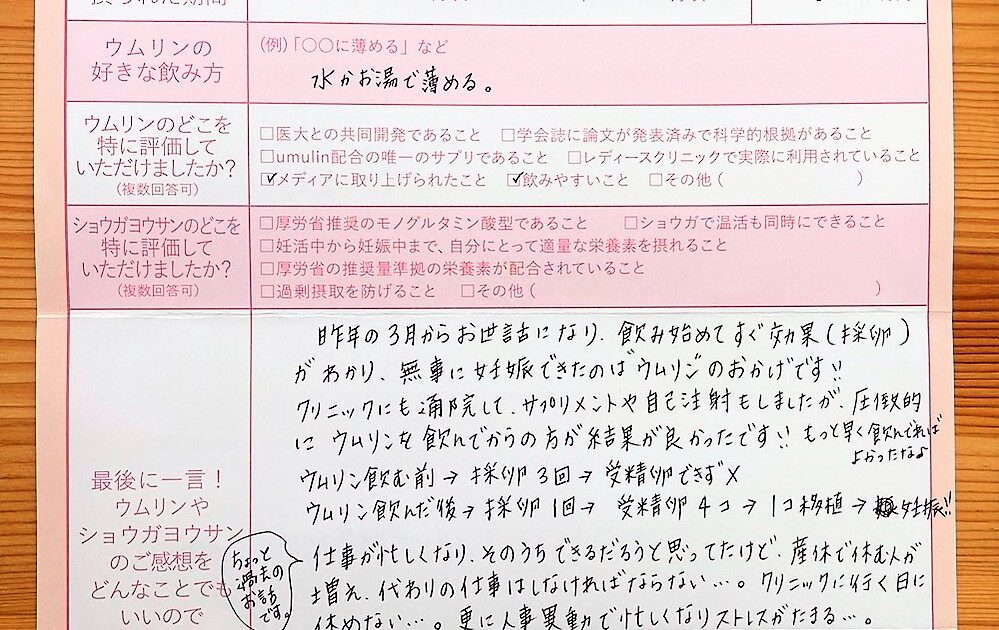 ウムリンの
好きな飲み方
(例)「○○に薄める」など
水かお湯で薄める。
ウムリンのどこを
特に評価して
いただけましたか?
(複数回答可)
□医大との共同開発であること □学会誌に論文が発表済みで科学的根拠があること
□umulin配合の唯一のサプリであること □レディースクリニックで実際に利用されていること
☑メディアに取り上げられたこと ☑飲みやすいこと □その他( )
ショウガヨウサンのどこを
特に評価して
いただけましたか?
(複数回答可)
□厚労省推奨のモノグルタミン酸型であること □ショウガで温活も同時にできること
□妊活中から妊娠中まで、自分にとって適量な栄養素を摂れること
□厚労省の推奨量準拠の栄養素が配合されていること
□過剰摂取を防げること □その他( )
最後に一言!
ウムリンや
ショウガヨウサン
のご感想を
どんなことでも
いいので
昨年の3月からお世話になり、飲み始めてすぐ効果(採卵)
がわかり、無事に妊娠できたのはウムリンのおかげです!!
クリニックにも通院して、サプリメントや自己注射もしましたが、圧倒的
に ウムリンを飲んでからの方が結果が良かったです!! もっと早く飲んでれば
よかったなぁ
ウムリン飲む前→採卵3回→受精卵できず×
ウムリン飲んだ後→採卵1回→ 受精卵4コ→1コ移植→妊娠!!
ちょっと
過去の
お話
です。
仕事が忙しくなり、そのうちできるだろうと思ってたけど、産休で休む人が
増え、代わりの仕事はしなければならない…。クリニックに行く日に
休めない…。更に人事異動で忙しくなりストレスがたまる…。